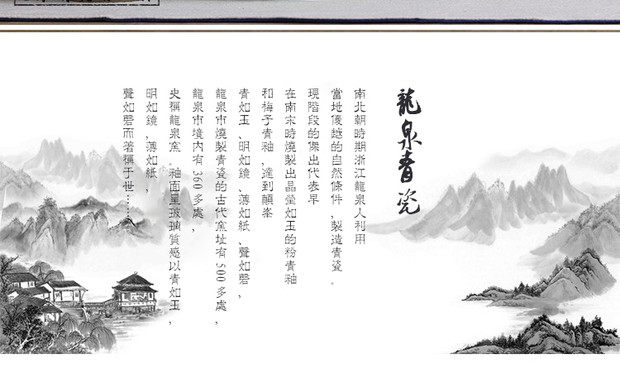 龍泉青瓷
南北朝時期浙江龍泉人利用
當地優越的自然條件，製造青瓷。
現階段的傑出代表早
在南宋時燒製出晶瑩如玉的粉青釉
和梅子青釉，達到頂峯
青如玉、明如鏡、薄如紙、聲如磬，
龍泉市燒製青瓷的古代窯址有500多處，
龍泉市境內有360多處，
史稱龍泉窯。釉面呈玻璃質感以青如玉，
明如鏡，薄如紙，
聲如磬而著稱于世……